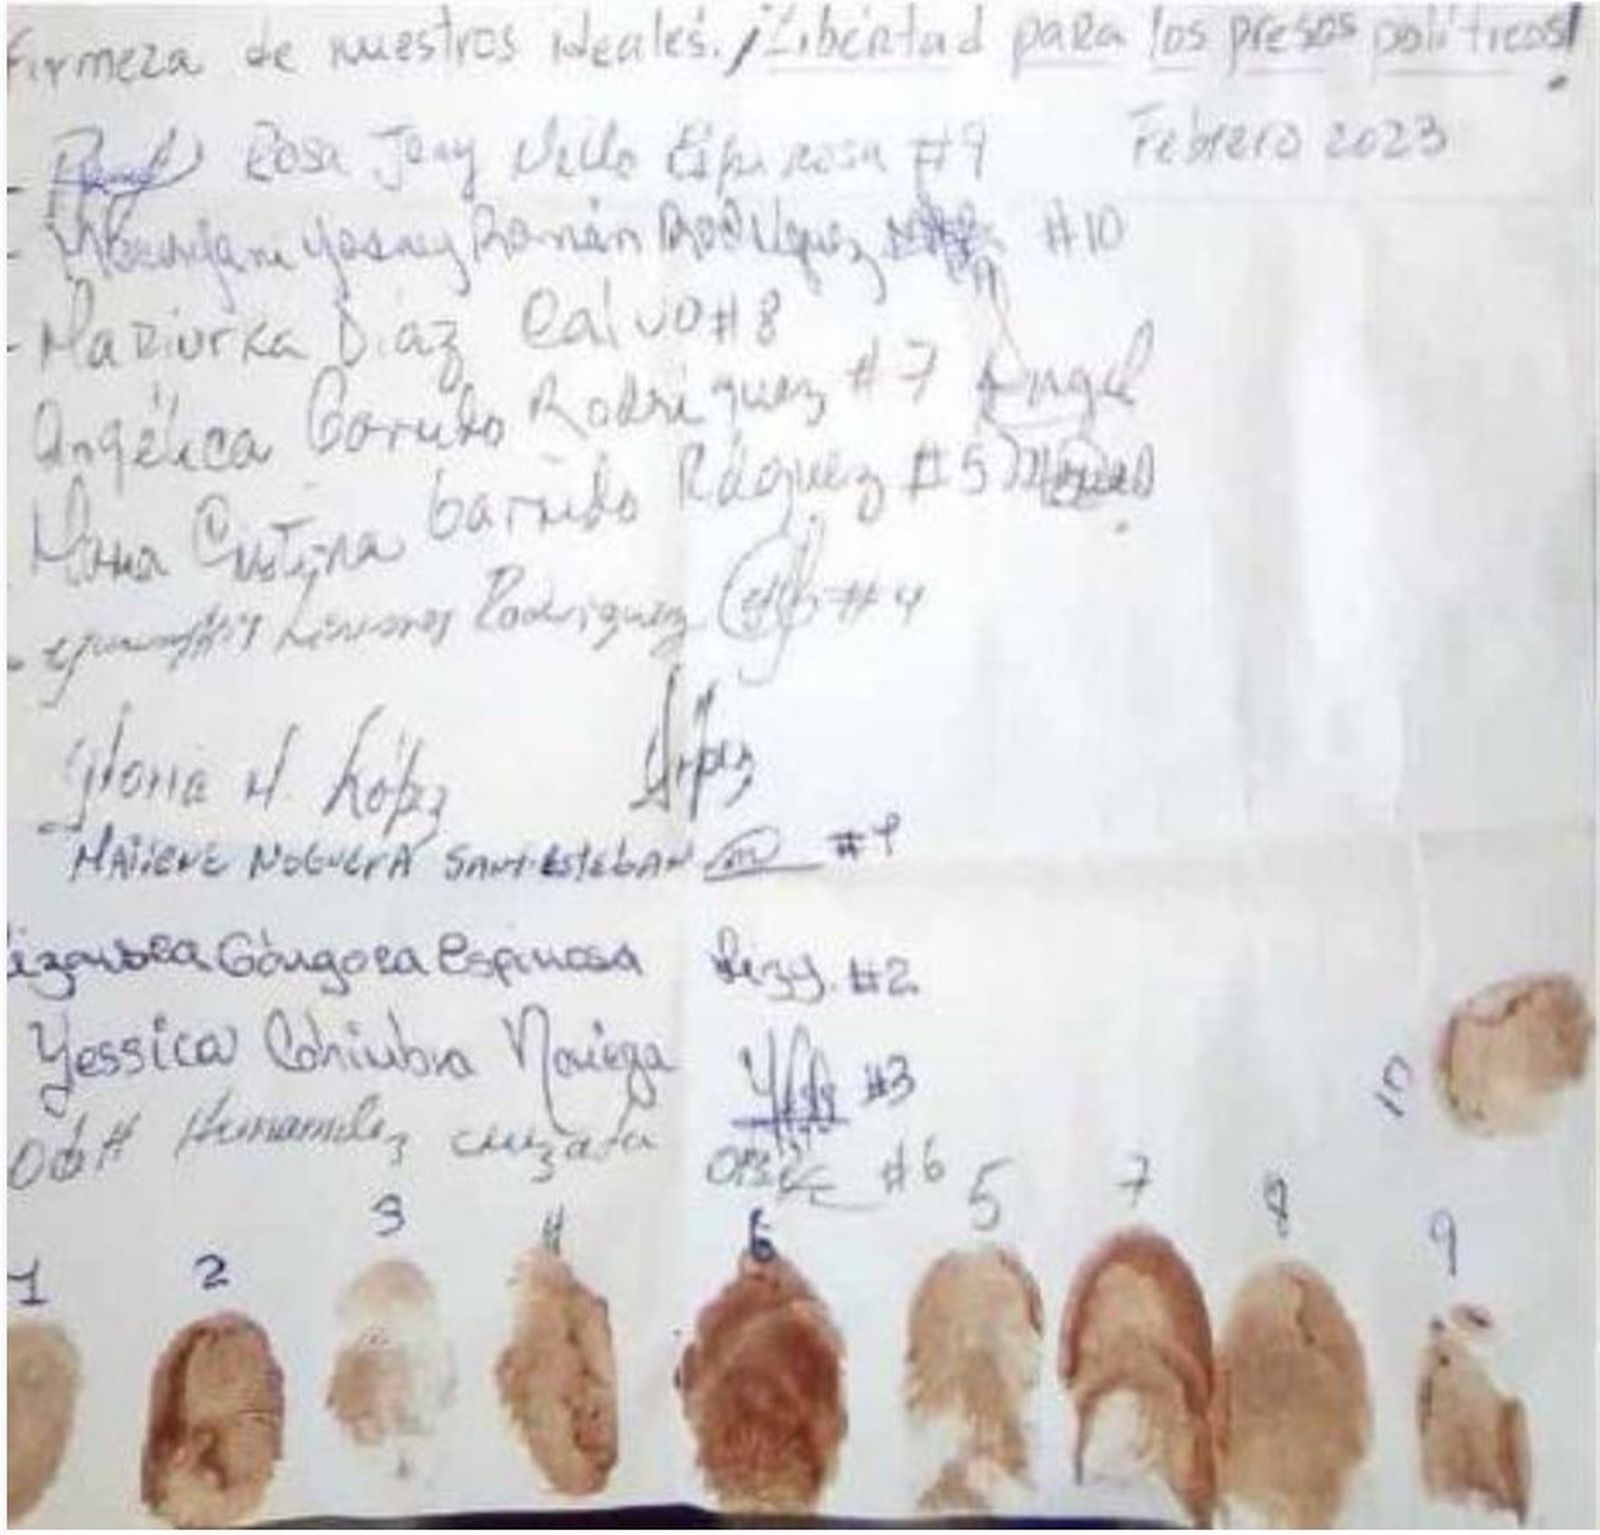 firmeza de nuestros ideales. ¡Libertad para los presos políticos!
Febrero 2023
Rosa Jeny Espinosa #9
Yosney Román Rodríguez #10
- Maziurka Díaz Calvo #8
Angélica Garrido Rodríguez #7 Angel
María Cristina Garrido Rdgguez #5
Linares Rodriguez #4
Gloria M. López López
MAilene NOGUERA SANTIESTEBAN #1
Lizandra Góngora Espinosa Lizzy. #2
Yessica Cohiubra Noriega #3
#6
10
3 4 6 5 7 8 9
1 2